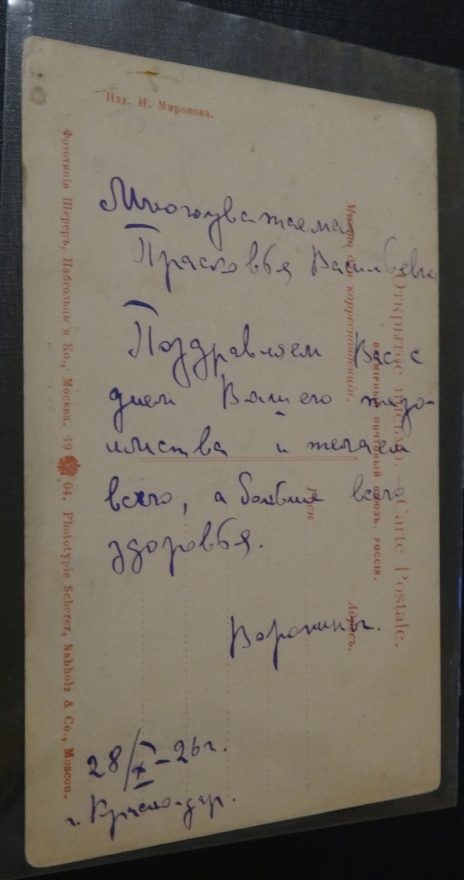 Изд. И. Миронова.
Многоуважаемая
Прасковья Васильевна
Поздравляем Вас с
днем Вашего тезо-
именства и желаем
всего, а больше всего
здоровья.
Воронины.
28/X-26 г.
г. Краснодар.
Фототипія Шереръ, Набгольцъ и Ко., Москва. 1904. Phototypie Scherer, Nabholz & Co., Moscou.
Мѣсто для корреспонденціи.
Открытое письмо. — Carte Postale.
ВСЕМІРНЫЙ ПОЧТОВЫЙ СОЮЗЪ. РОССІЯ.
Адресъ.